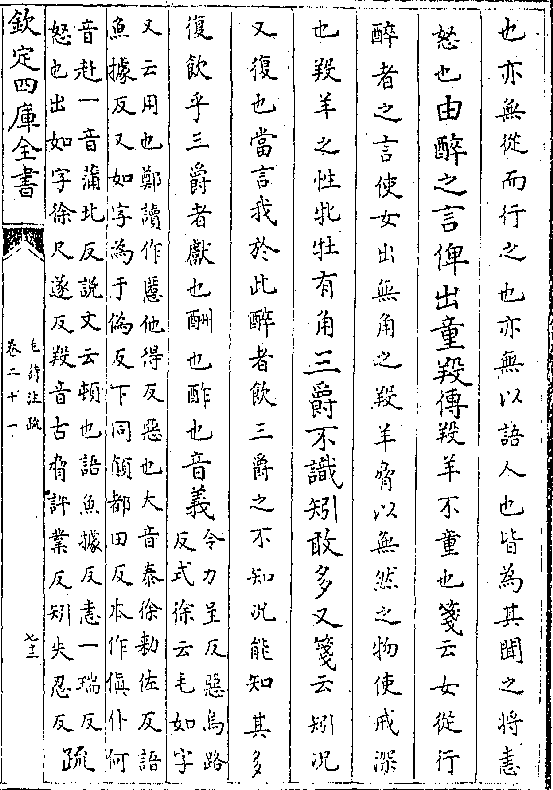 也亦無從而行之也亦無以語人也皆為其聞之將恚
怒也由醉之言俾出童羖傳羖羊不童也箋云女從行
醉者之言使女出無角之羖羊脅以無然之物使戒深
也羖羊之性牝牡有角三爵不識矧敢多又箋云矧況
又復也當言我於此醉者飲三爵之不知況能知其多
復飲乎三爵者獻也酬也酢也音義
令力呈反惡烏路
反式徐云毛如字
又云用也鄭讀作慝他得反惡也大音泰徐勅佐反語
魚據反又如字為于偽反下同顛都田反本作傎仆何
音赴一音蒲北反説文云頓也語魚據反恚一瑞反
怒也出如字徐尺遂反羖音古脅許業反矧失忍反
疏
欽定四庫全書
毛詩注疏
卷二十一
七三